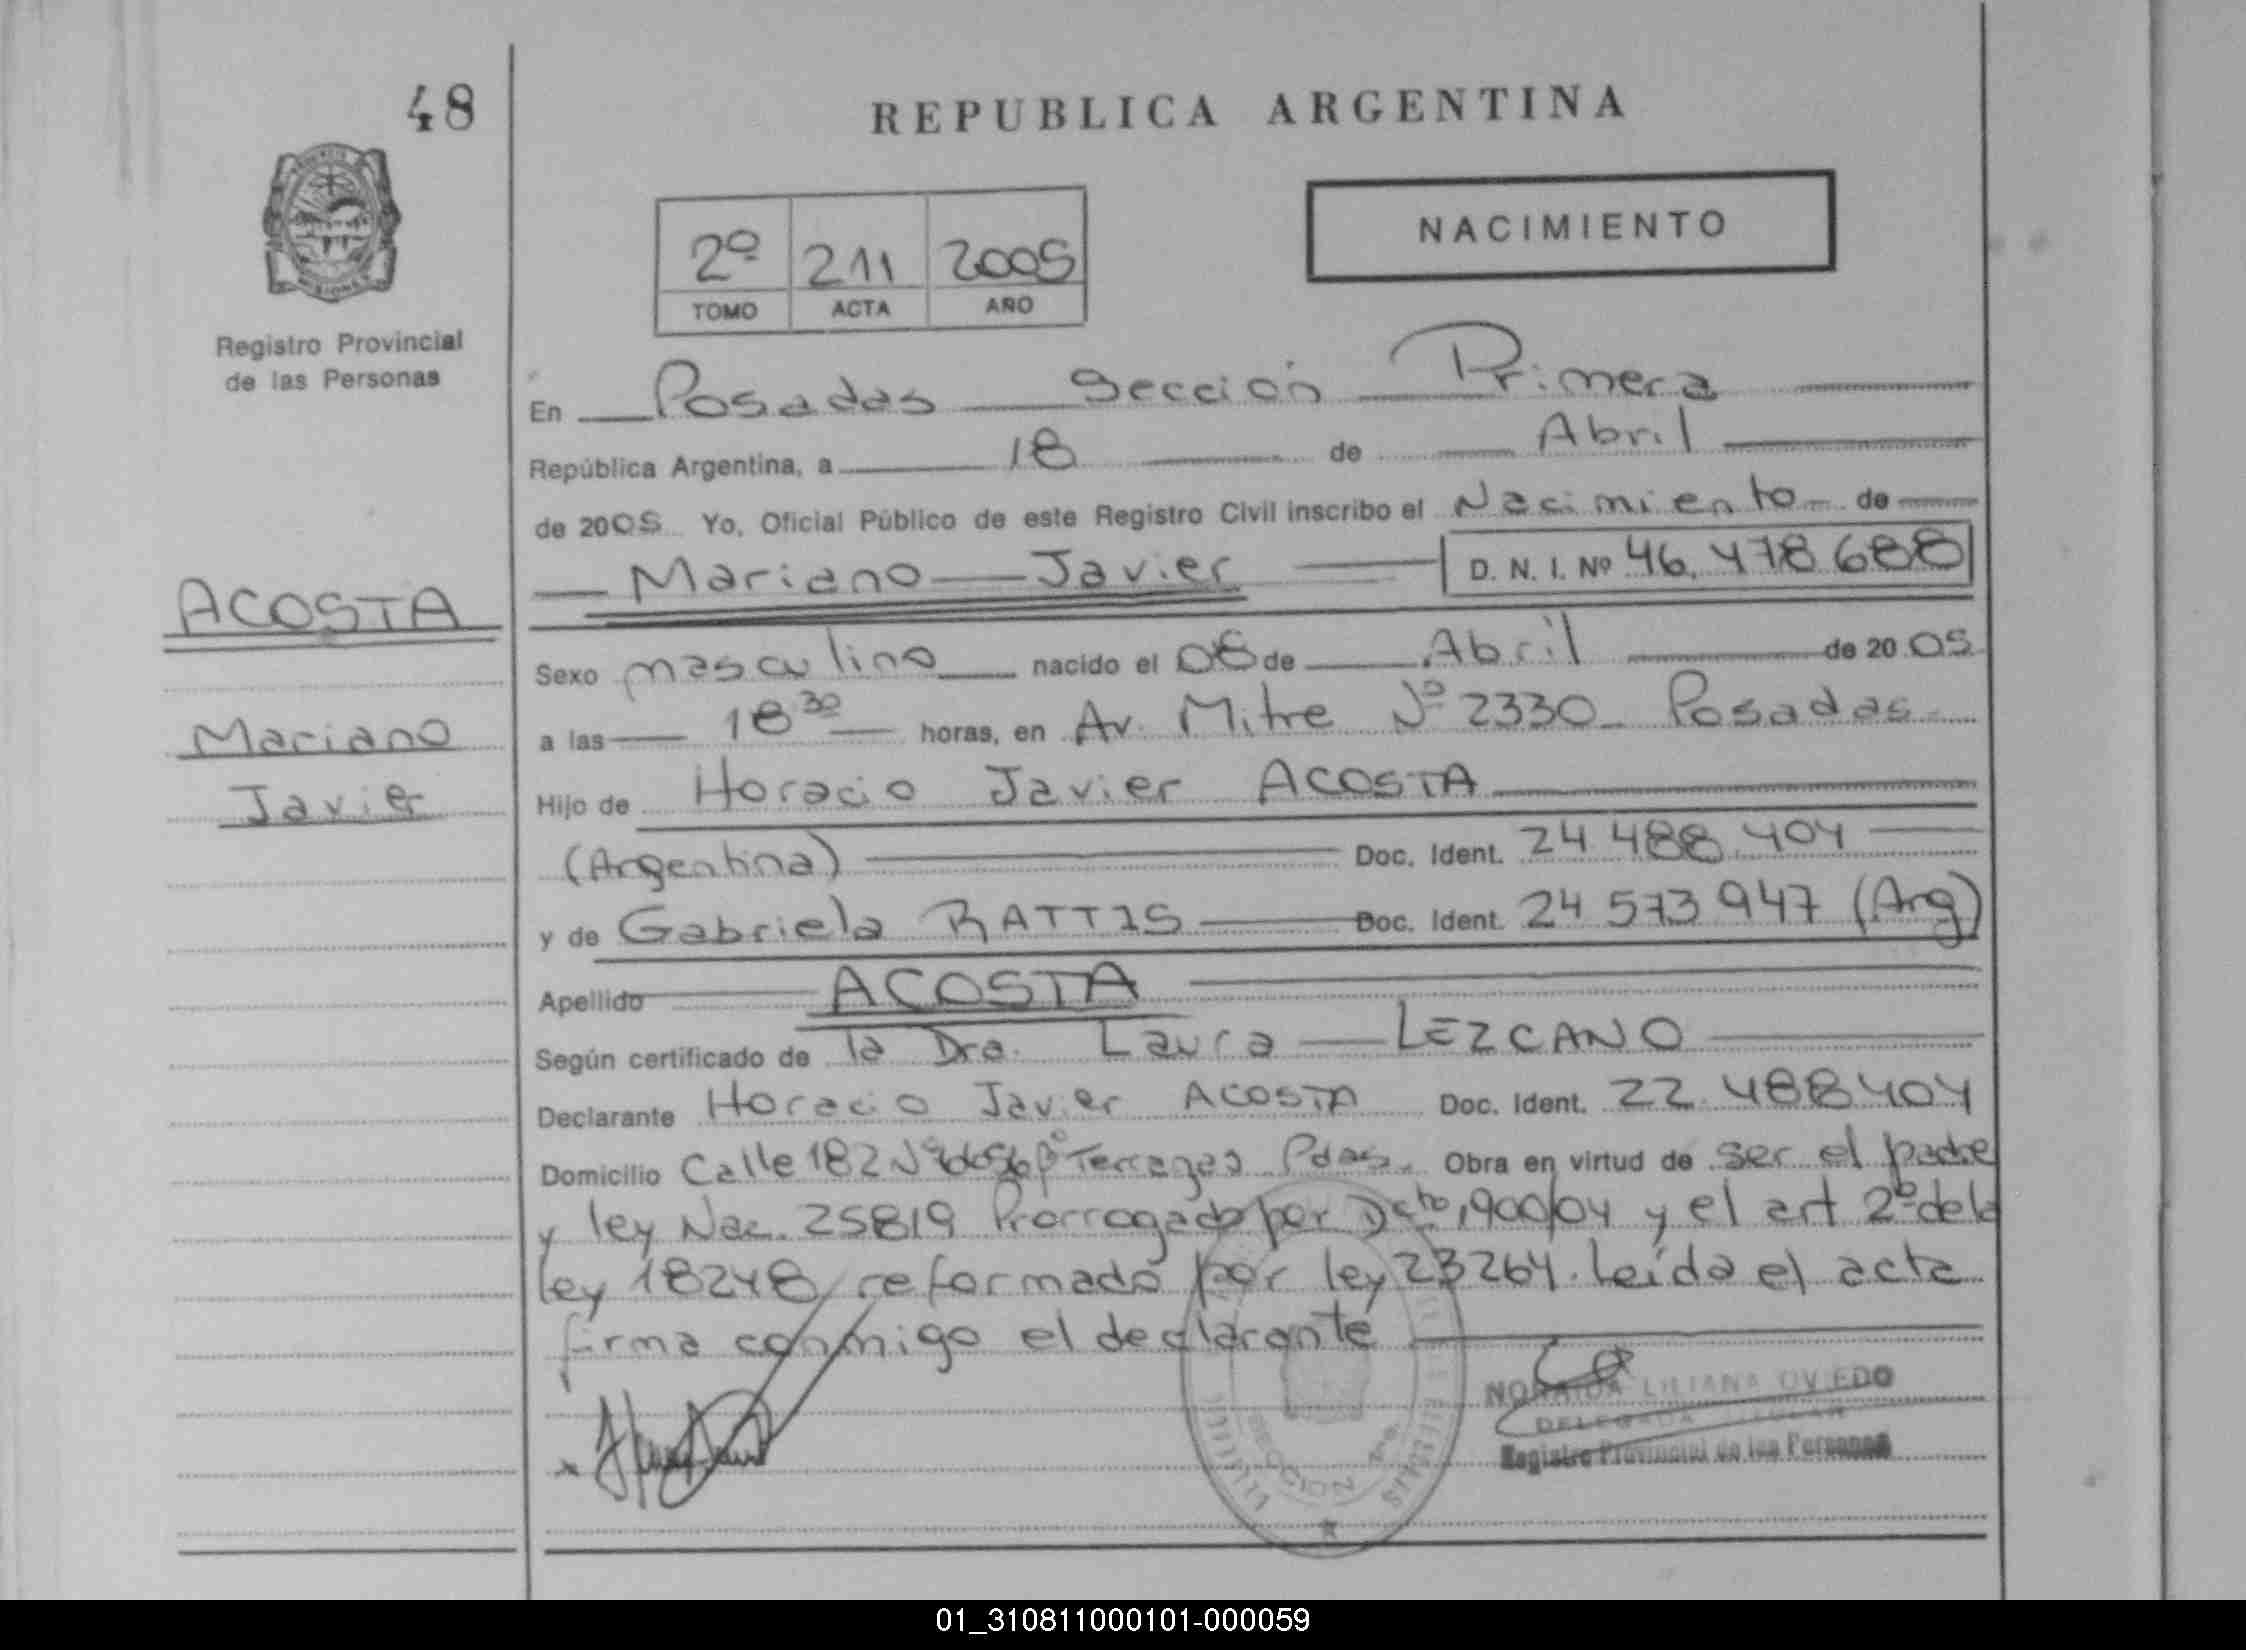 48
REPUBLICA ARGENTINA
NACIMIENTO
2º 211 2005
TOMO ACTA AÑO
Registro Provincial
de las Personas
En Posadas Sección Primera
República Argentina, a 18 de Abril
de 2005 Yo, Oficial Público de este Registro Civil inscribo el Nacimiento de
Mariano Javier D. N. I. Nº 46.478.688
ACOSTA
Mariano
Javier
Sexo masculino nacido el 08 de Abril de 2005
a las 18 30 horas, en Av. Mitre Nº 2330 Posadas
Hijo de Horacio Javier ACOSTA
(Argentina) Doc. Ident. 24 488.404
y de Gabriela RATTIS Doc. Ident. 24 573 947 (Arg)
Apellido ACOSTA
Según certificado de la Dra. Laura LEZCANO
Declarante Horacio Javier ACOSTA Doc. Ident. 22.488404
Domicilio Calle 182 Nº Terrazas Pdas. Obra en virtud de ser el padre
y ley Nac. 25819 Prorrogado por Dcto, 1900/04 y el art 2º de la
ley 18248 reformado por ley 23264. Leída el acta
firma conmigo el declarante
LILIANA OVIEDO
DELEGADA TITULAR
Registro Provincial de las Personas
SECCION 1ra.
01_310811000101-000059